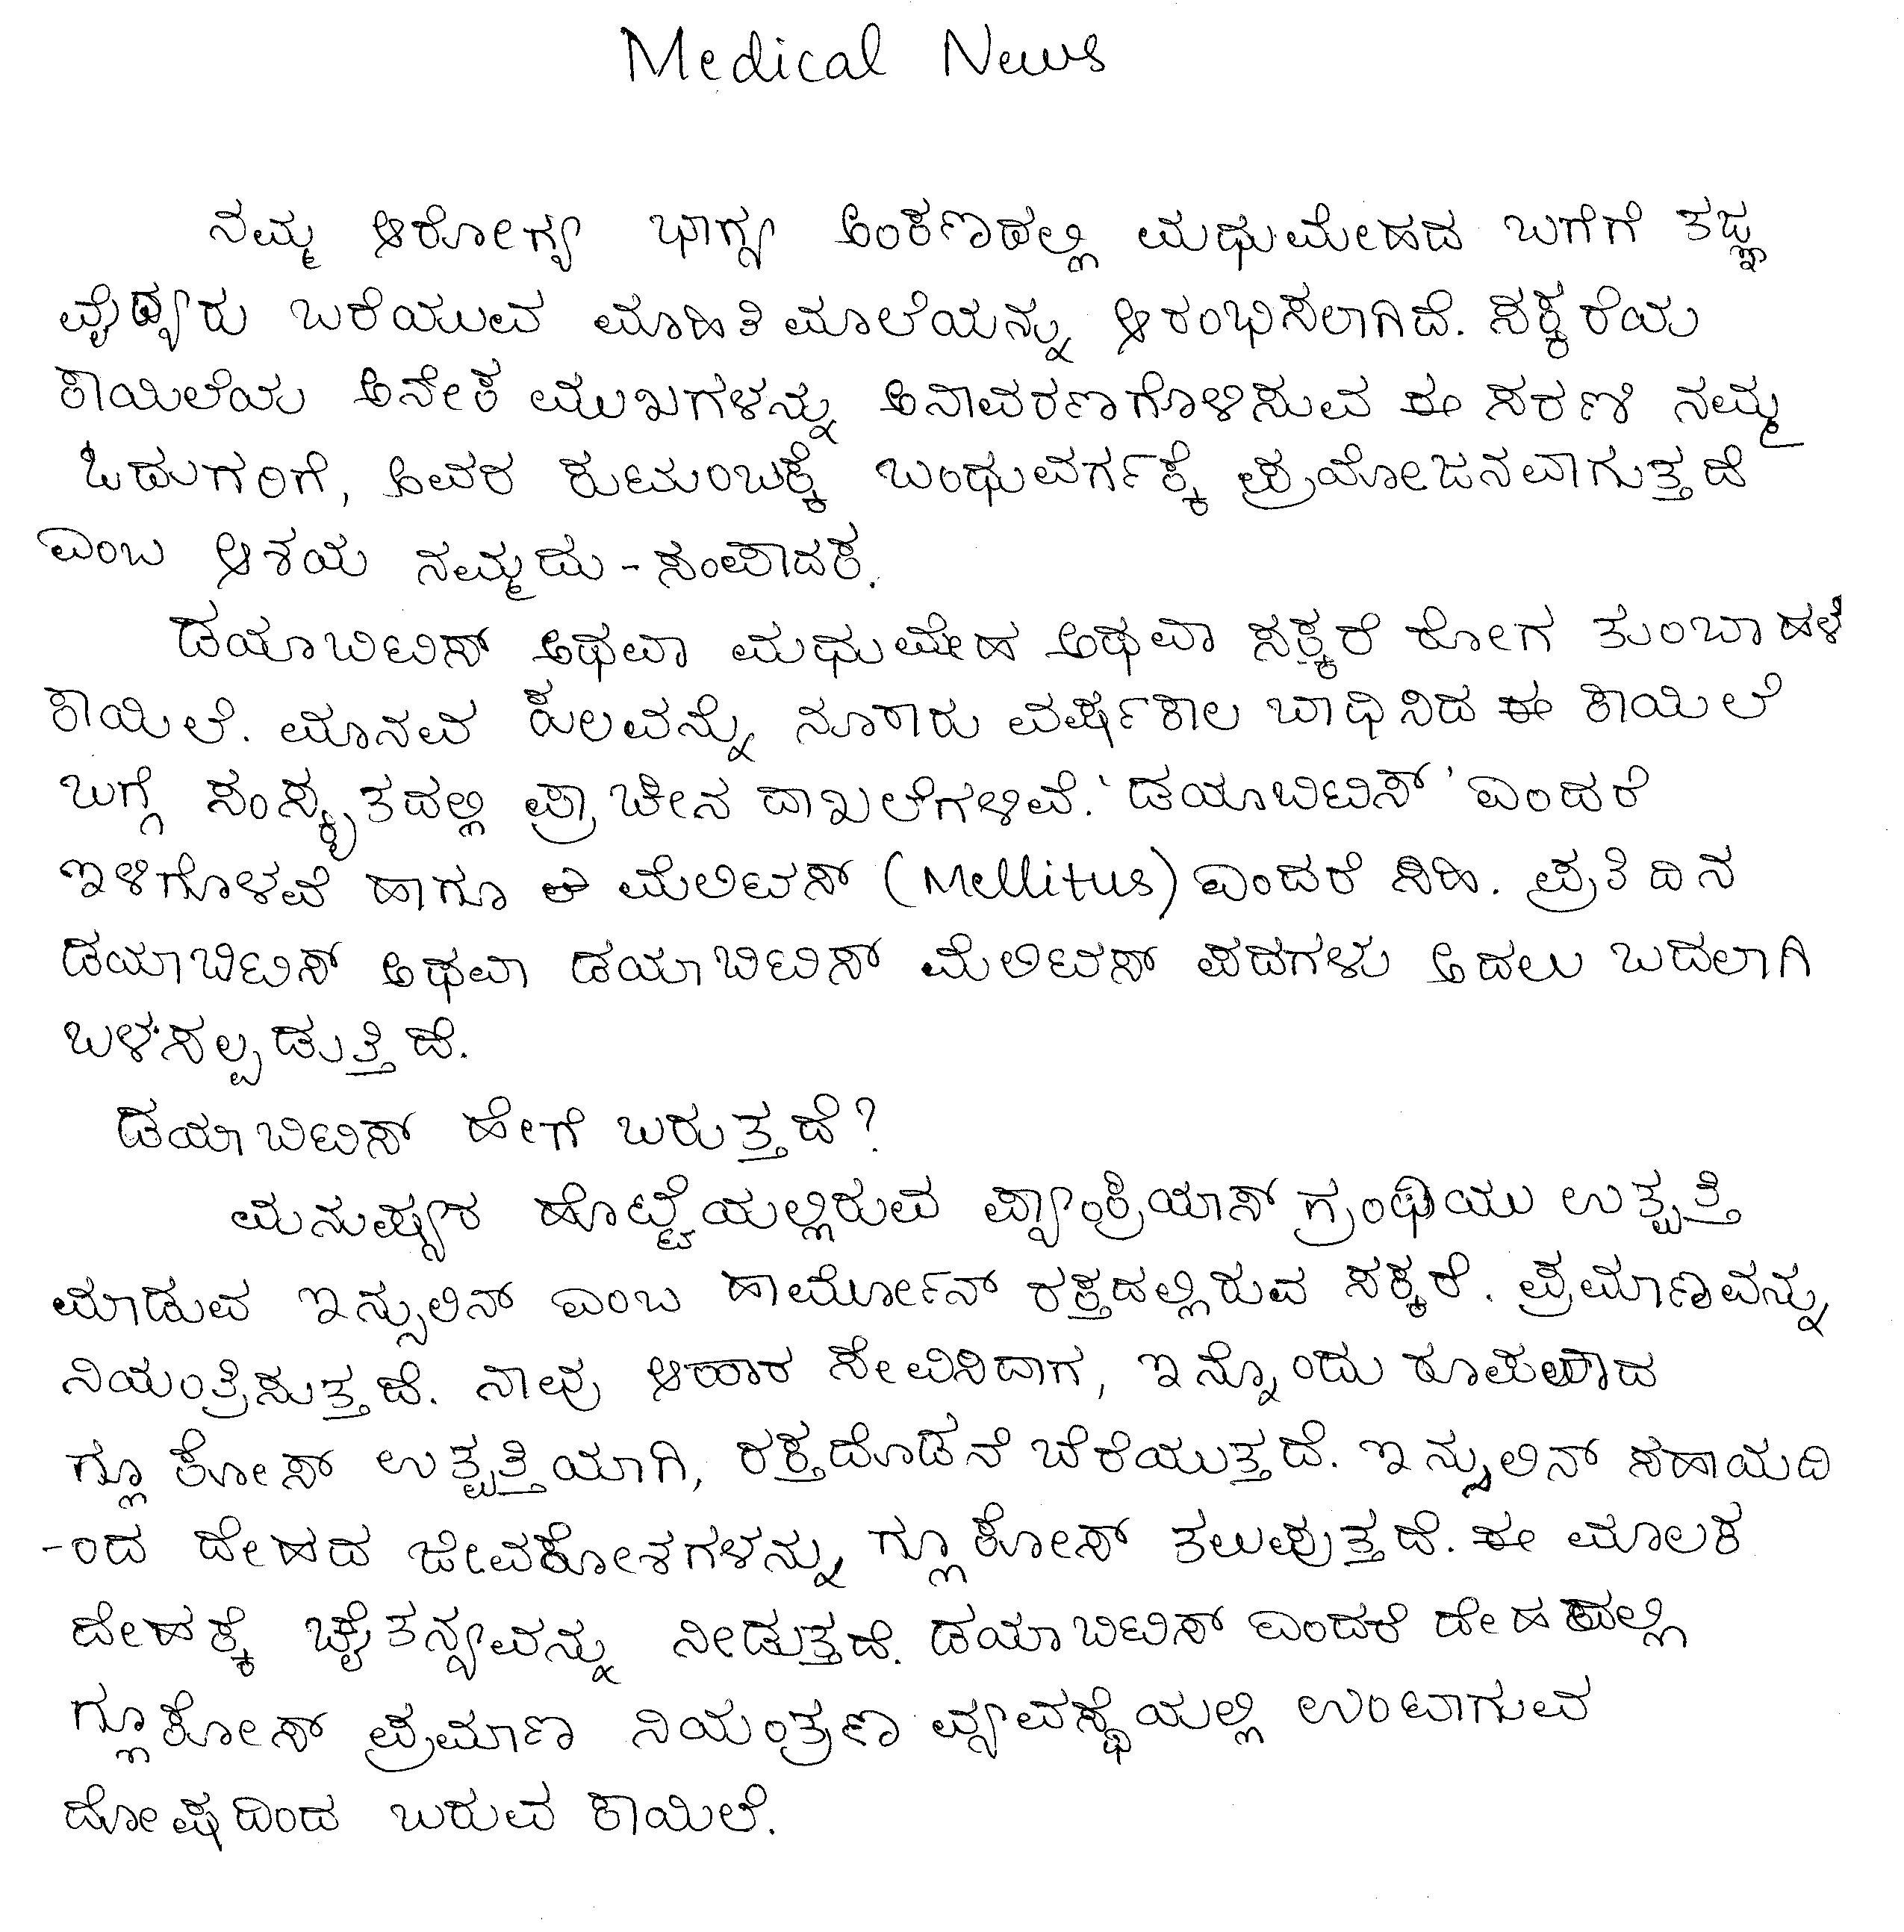 Medical News
ನಮ್ಮ ಆರೋಗ್ಯ ಭಾಗ್ಯ ಅಂಕಣದಲ್ಲಿ ಮಧುಮೇಹದ ಬಗೆಗೆ ತಜ್ಞ
ವೈದ್ಯರು ಬರೆಯುವ ಮಾಹಿತಿ ಮಾಲೆಯನ್ನು ಆರಂಭಿಸಲಾಗಿದೆ. ಸಕ್ಕರೆಯ
ಕಾಯಿಲೆಯ ಅನೇಕ ಮುಖಗಳನ್ನು ಅನಾವರಣಗೊಳಿಸುವ ಈ ಸರಣಿ ನಮ್ಮ
ಓದುಗರಿಗೆ, ಅವರ ಕುಟುಂಬಕ್ಕೆ ಬಂಧುವರ್ಗಕ್ಕೆ ಪ್ರಯೋಜನವಾಗುತ್ತದೆ
ಎಂಬ ಆಶಯ ನಮ್ಮದು - ಸಂಪಾದಕ.
ಡಯಾಬಿಟಿಸ್ ಅಥವಾ ಮಧುಮೇಹ ಅಥವಾ ಸಕ್ಕರೆ ರೋಗ ತುಂಬಾ ಹಳೆ
ಕಾಯಿಲೆ. ಮಾನವ ಕುಲವನ್ನೆ ನೂರಾರು ವರ್ಷಕಾಲ ಬಾಧಿಸಿದ ಈ ಕಾಯಿಲೆ
ಬಗ್ಗೆ ಸಂಸ್ಕೃತದಲ್ಲಿ ಪ್ರಾಚೀನ ದಾಖಲೆಗಳಿವೆ. 'ಡಯಾಬಿಟಿಸ್' ಎಂದರೆ
ಇಳಿಗೊಳವೆ ಹಾಗೂ ಮೆಲಿಟಸ್ (Mellitus) ಎಂದರೆ ಸಿಹಿ. ಪ್ರತಿ ದಿನ
ಡಯಾಬಿಟಿಸ್ ಅಥವಾ ಡಯಾಬಿಟಿಸ್ ಮೆಲಿಟಸ್ ಪದಗಳು ಅದಲು ಬದಲಾಗಿ
ಬಳಸಲ್ಪಡುತ್ತಿದೆ.
ಡಯಾಬಿಟಿಸ್ ಹೇಗೆ ಬರುತ್ತದೆ?
ಮನುಷ್ಯರ ಹೊಟ್ಟೆಯಲ್ಲಿರುವ ಪ್ಯಾಂಕ್ರಿಯಾಸ್ ಗ್ರಂಥಿಯು ಉತ್ಪತ್ತಿ
ಮಾಡುವ ಇನ್ಸುಲಿನ್ ಎಂಬ ಹಾರ್ಮೋನ್ ರಕ್ತದಲ್ಲಿರುವ ಸಕ್ಕರೆ. ಪ್ರಮಾಣವನ್ನು
ನಿಯಂತ್ರಿಸುತ್ತದೆ. ನಾವು ಆಹಾರ ಸೇವಿಸಿದಾಗ, ಇನ್ನೊಂದು ರೂಪವಾದ
ಗ್ಲೂಕೋಸ್ ಉತ್ಪತ್ತಿಯಾಗಿ, ರಕ್ತದೊಡನೆ ಬೆರೆಯುತ್ತದೆ. ಇನ್ಸುಲಿನ್ ಸಹಾಯದಿ
-ಂದ ದೇಹದ ಜೀವಕೋಶಗಳನ್ನು ಗ್ಲೂಕೋಸ್ ತಲುಪುತ್ತದೆ. ಈ ಮೂಲಕ
ದೇಹಕ್ಕೆ ಚೈತನ್ಯವನ್ನು ನೀಡುತ್ತದೆ. ಡಯಾಬಿಟಿಸ್ ಎಂದರೆ ದೇಹದಲ್ಲಿ
ಗ್ಲೂಕೋಸ್ ಪ್ರಮಾಣ ನಿಯಂತ್ರಣ ವ್ಯವಸ್ಥೆಯಲ್ಲಿ ಉಂಟಾಗುವ
ದೋಷದಿಂದ ಬರುವ ಕಾಯಿಲೆ.